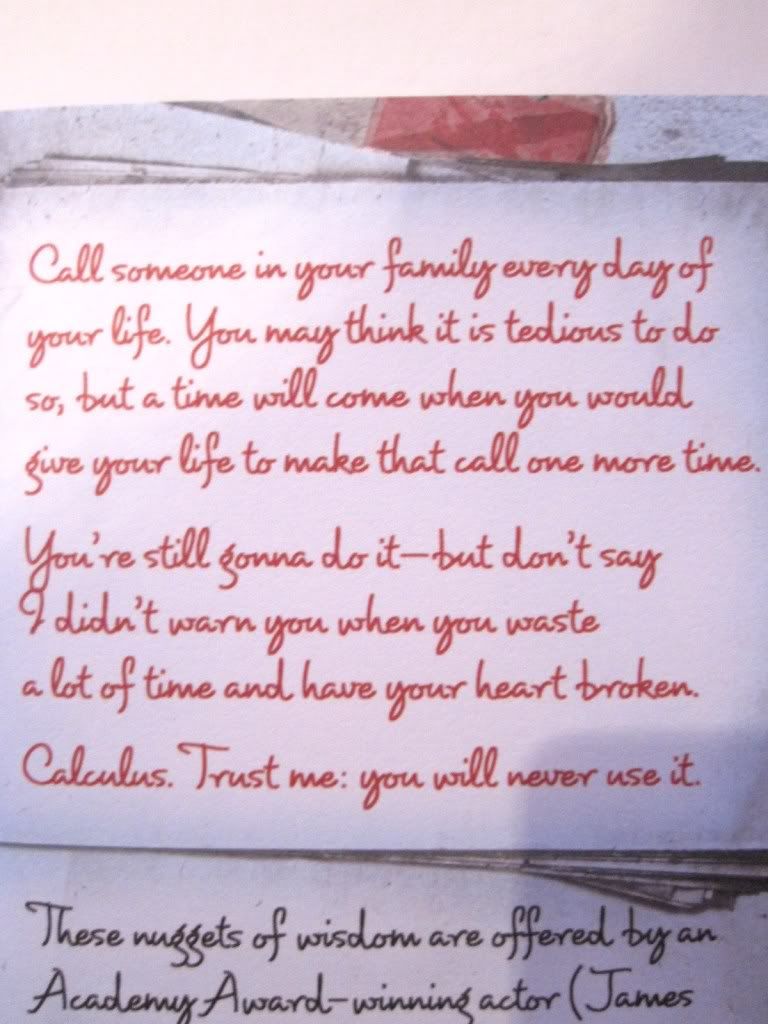 Call someone in your family every day of
your life. You may think it is tedious to do
so, but a time will come when you would
give your life to make that call one more time.
You're still gonna do it—but don't say
I didn't warn you when you waste
a lot of time and have your heart broken.
Calculus. Trust me: you will never use it.
These nuggets of wisdom are offered by an
Academy Award-winning actor (James